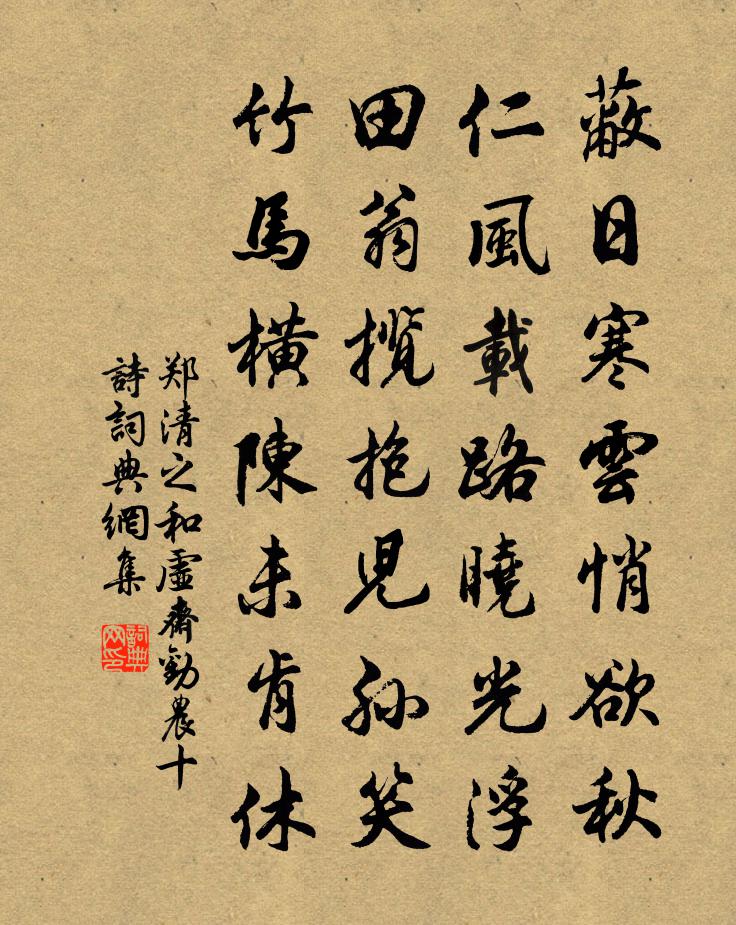 蔽日寒雲悄欲秋
仁風載路曉光浮
田翁攬抱兒孙笑
竹馬橫陳未肯休
郑清之和虛齋勸農十
詩詞典網集
詞典
网印